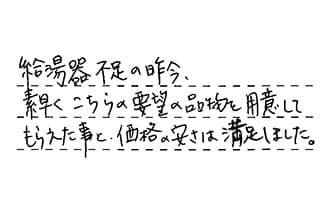 給湯器不足の昨今、
素早くこちらの要望の品物を用意して
もらえた事と、価格の安さは満足しました。